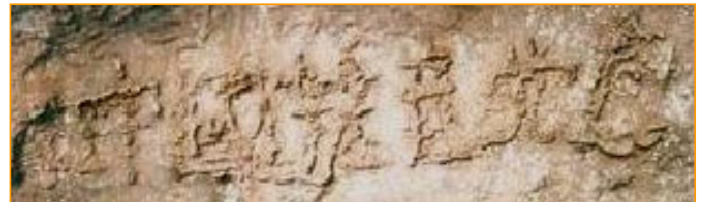 中國共産党亡